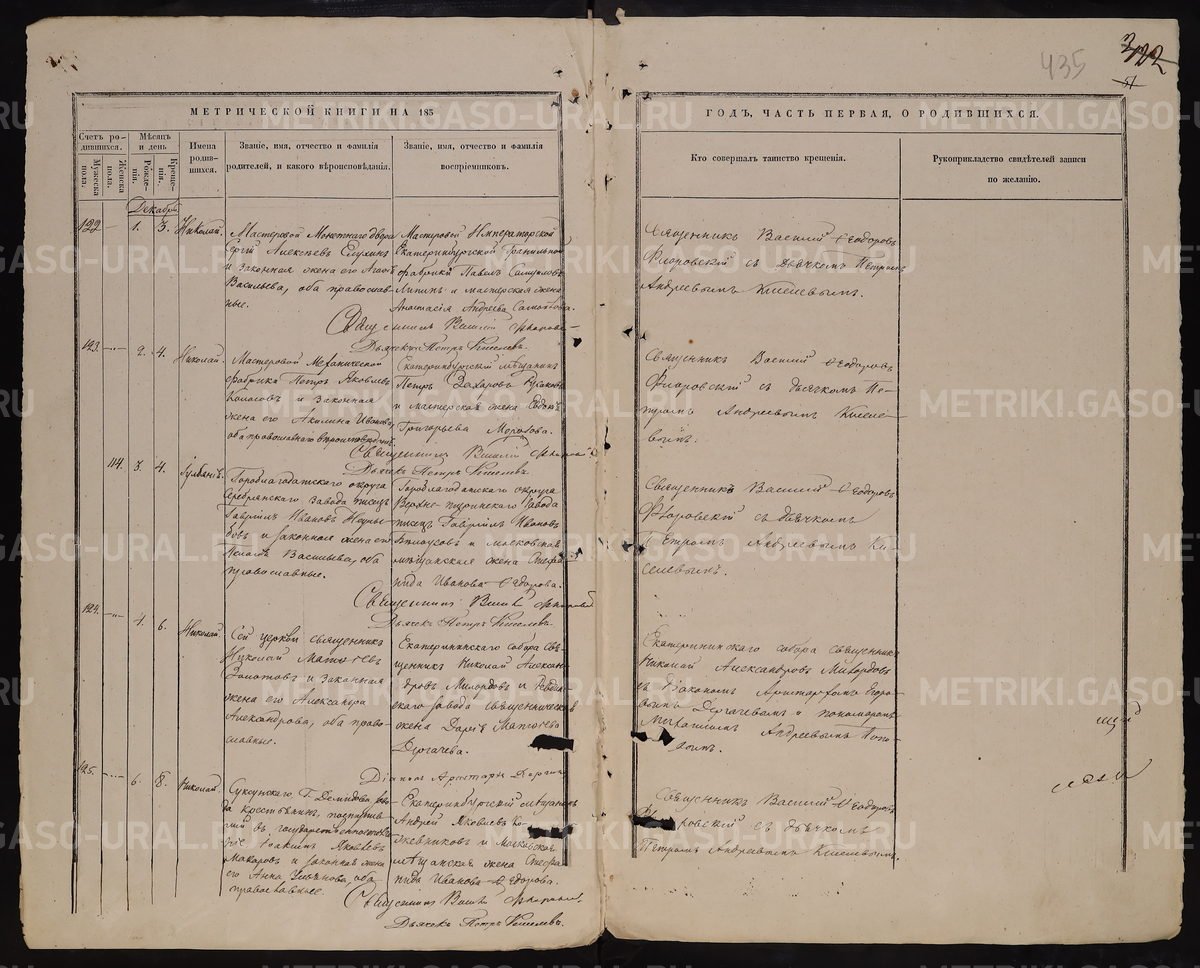 435
322
МЕТРИЧЕСКОЙ КНИГИ НА 185
ГОДЪ, ЧАСТЬ ПЕРВАЯ, О РОДИВШИХСЯ.
Счетъ родившихся.
Мужеска пола.
Женска пола.
Мѣсяцъ и день
Рожденія.
Крещенія.
Имена родившихся.
Званіе, имя, отчество и фамилія
родителей, и какого вѣроисповѣданія.
Званіе, имя, отчество и фамилія
воспріемниковъ.
Кто совершалъ таинство крещенія.
Рукоприкладство свидѣтелей записи
по желанію.
Декабрь
122 1. 3. Николай.
Мастеровой Монетнаго двора
Сергій Алексѣевъ
и законная жена его
Васильева, оба православные.
Мастеровой Императорской
Екатеринбургской Гранильной
фабрики Павелъ Самуиловъ
и мастерская жена
Анастасія Андреева
Священникъ Василій Флоровскій
Дьячекъ Петръ Киселевъ.
Священникъ Василій Ѳеодоровъ
Флоровскій съ дьячкомъ Петромъ
Андреевымъ Киселевымъ.
123. 2. 4. Николай.
Мастеровой Механической
фабрики Петръ Яковлевъ
и законная
жена его Акилина Иванова,
оба православнаго вѣроисповѣданія.
Екатеринбургскій мѣщанинъ
Петръ Захаровъ
и мастерская жена Евдокія
Григорьева Морозова.
Священникъ Василій Флоровскій
Дьячекъ Петръ Киселевъ.
Священникъ Василій Ѳеодоровъ
Флоровскій съ дьячкомъ Петромъ
Андреевымъ Киселевымъ.
114. 3. 4. Іуліанія.
Гороблагодатскаго округа
Серебрянскаго завода писецъ
Гавріилъ Ивановъ
и законная жена его
Пелагія Васильева, оба
православные.
Гороблагодатскаго округа
Верхне-туринскаго завода
писецъ Гавріилъ Ивановъ
Бѣлоусовъ и московская
мѣщанская жена Стефанида
Иванова Ѳедорова.
Священникъ Василій Флоровскій
Дьячекъ Петръ Киселевъ.
Священникъ Василій Ѳеодоровъ
Флоровскій съ дьячкомъ
Петромъ Андреевымъ Киселевымъ.
124. 4. 6. Николай.
Сей церкви священникъ
Николай Матѳіевъ
Золотовъ и законная
жена его Александра
Александрова, оба православные.
Екатерининскаго собора священникъ
Николай Александровъ
Милордовъ и Ревдинскаго
завода священническая
жена Дарія Матѳіева
Дергачева.
Діаконъ Аристархъ
Екатерининскаго собора священникъ
Николай Александровъ Милордовъ
съ діакономъ Аристархомъ Егоровымъ
Дергачевымъ и пономаремъ
Андреевымъ
125. 6. 8. Николай.
Суксунскаго Г. Демидова завода
крестьянинъ,
въ
Іоакимъ Яковлевъ
Макаровъ и законная жена
его Анна Ульянова, оба
православные.
Екатеринбургскій мѣщанинъ
Андрей Яковлевъ Кожевниковъ
и московская
мѣщанская жена Стефанида
Иванова Ѳедорова.
Священникъ Василій Флоровскій
Дьячекъ Петръ Киселевъ.
Священникъ Василій Ѳеодоровъ
Флоровскій съ дьячкомъ
Петромъ Андреевымъ Киселевымъ.
METRIKI.GASO-URAL.RU